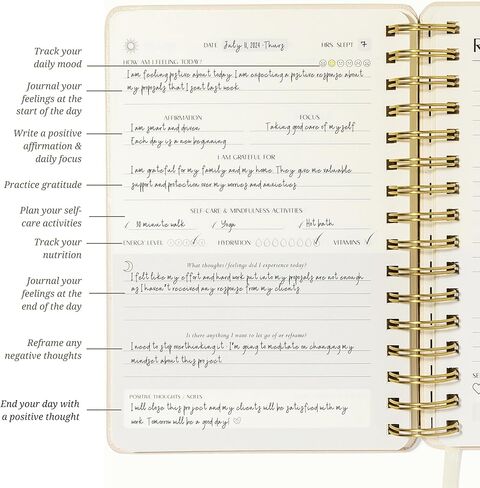 Track your
daily mood
Journal your
feelings at the
start of the day
Write a positive
affirmation &
daily focus
Practice gratitude
Plan your self-
care activities
Track your
nutrition
Journal your
feelings at the
end of the day
Reframe any
negative thoughts
End your day with
a positive thought
DATE July 11, 2024 - Thurs HRS. SLEPT 7
HOW AM I FEELING TODAY?
I am feeling positive about today. I am expecting a positive response about
my proposals that I sent last week.
AFFIRMATION FOCUS
I am smart and driven Taking good care of myself
Each day is a new beginning
I AM GRATEFUL FOR
I am grateful for my family and my home. They give me valuable
support and protection over my worries and anxieties.
SELF-CARE & MINDFULNESS ACTIVITIES
✓ 30 minute walk ✓ Yoga ✓ Hot bath
ENERGY LEVEL HYDRATION VITAMINS ✓
What thoughts/feelings did I experience today?
I felt like my effort and hard work put into my proposals are not enough
as I haven't received any response from my clients.
Is there anything I want to let go of or reframe?
I need to stop overthinking it. I'm going to meditate on changing my
mindset about this project.
POSITIVE THOUGHTS / NOTES
I will close this project and my clients will be satisfied with my
work. Tomorrow will be a good day! ♡